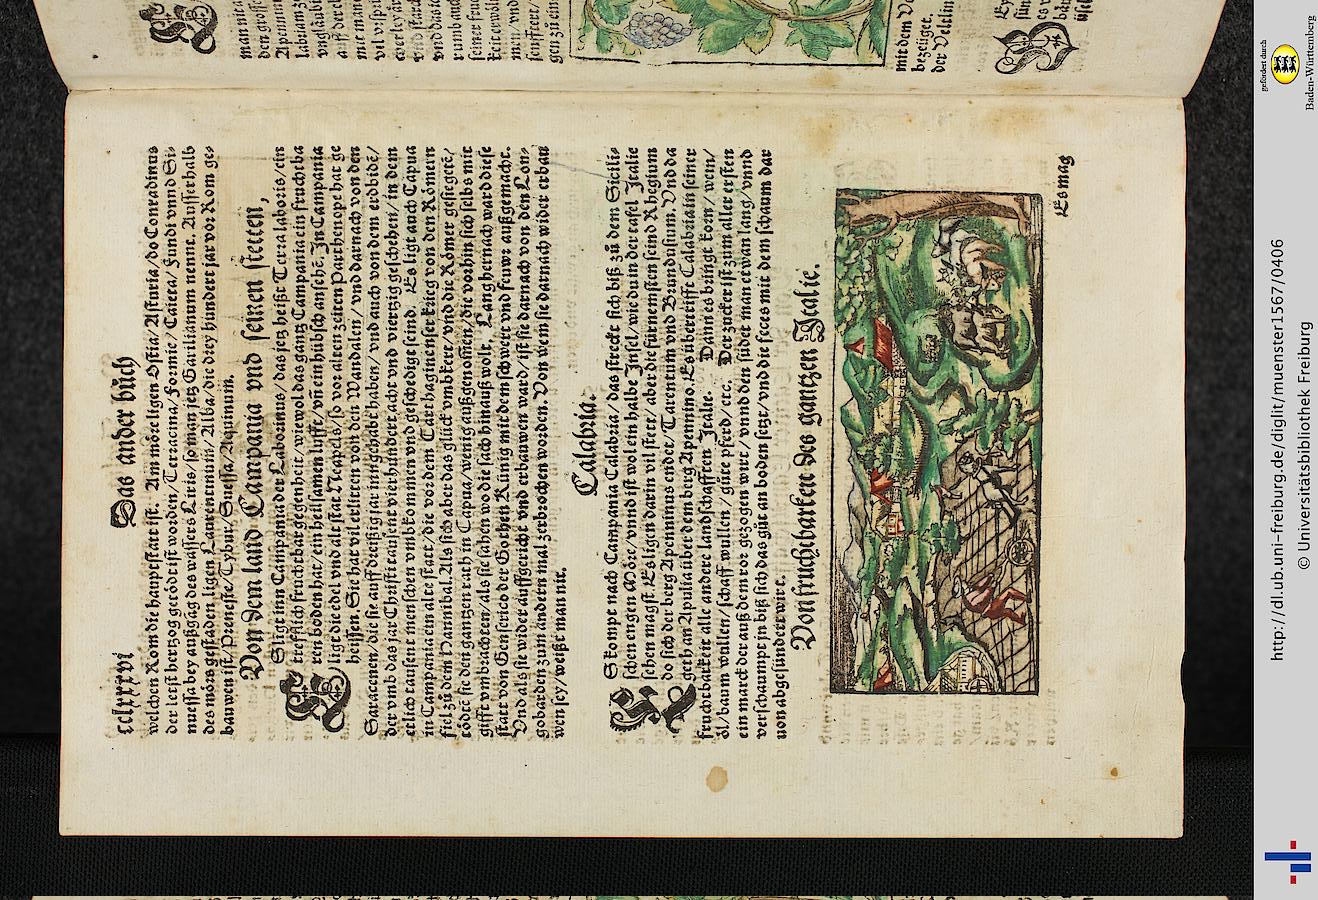 cclxxxvi
Das ander buͤch
welchen Rom die hauptstat ist. Am moͤre ligen Ostia/Asturia/do Conradinus
der letst hertzog getoͤdt ist worden/Terracina/Formie/Caieta/Fundi vnnd Si-
nuessa bey außgãg des wassers Liris/so man jetz Garilianum nennt. Ausserhalb
des moͤrs gestaden ligen Laurentinum/Alba/die drey hundert jar vor Rom ge-
bauwen ist/Preneste/Tybur/Suessa/Aquinum.
Von dem land Campania vnd seinen stetten,
ES ligt inn Campania der Laborinus/das jetz heißt Terra laboris/ein
trefflich fruchtbar gegenheit/wiewol das gantz Campania ein fruchtba
ren boden hat/ein heilsamen lufft/vñ ein hübsch ansehẽ. In Campania
ligt die edel vnd alt statt Neapels/so vor alten zeiten Parthenope hat ge
heissen. Sie hat vil erlitten von den Wandalen/vnd darnach von den
Saracenen/die sie auff dreißig jar inngehabt haben/vnd auch von dem erdbidẽ/
der vmb das jar Christi tausent vierhundert acht vnd viertzig geschehen/in dem
etlich tausent menschen vmbkommen vnd geschediget seind. Es ligt auch Capua
in Campania ein alte statt/die vor dem Carthaginenser krieg von den Roͤmern
fiel zuͤ dem Hannibal. Als sich aber das glück vmbkert/vnd die Roͤmer gesiegtẽ/
toͤdtẽ sie den gantzen rath in Capua/wenig außgenom̃en/die vorhin sich selbs mit
gifft vmbbrachten/als sie sahen wo die sach hinauß wolt. Lang hernach ward diese
statt von Genserico der Gothen Künig mit dem schwert vnd feuwr außgemacht.
Vnd als sie wider auffgericht vnd erbauwen ward/ist sie darnach von den Lon-
gobarden zum andern mal zerbrochen worden. Von wem sie darnach wider erbau
wen sey/weißt man nit.
Calabria.
ES kompt nach Campania Calabria/das streckt sich biß zuͤ dem Sicili-
schen engen Moͤre/vnnd ist wol ein halbe Insel/wie du in der tafel Italie
sehen magst. Es ligen darin vil stett/aber die fürnemsten seind Rhegium
do sich der berg Apenninus endet/Tarentum vnd Brundusium. Vnd da
geth an Alpulia über dem berg Apennino. Es übertrifft Calabria in seiner
fruchtbarkeit alle andere landschafften Italie. Dann es bringt korn/wein/
oͤl/baum wullen/schaff wullen/guͤte pferd/etc. Der zucker ist zum aller ersten
ein marck der auß dem ror gezogen wirt/vnnd den südet man etwan lang/vnnd
verschaumpt jn biß sich das guͤt an boden setzt/vnd die feces mit dem schaum dar
uon abgesündert wirt.
Von fruchtbarkeit des gantzen Italie.
Es mag
http://dl.ub.uni-freiburg.de/diglit/muenster1567/0406
© Universitätsbibliothek Freiburg
gefördert durch
Baden-Württemberg